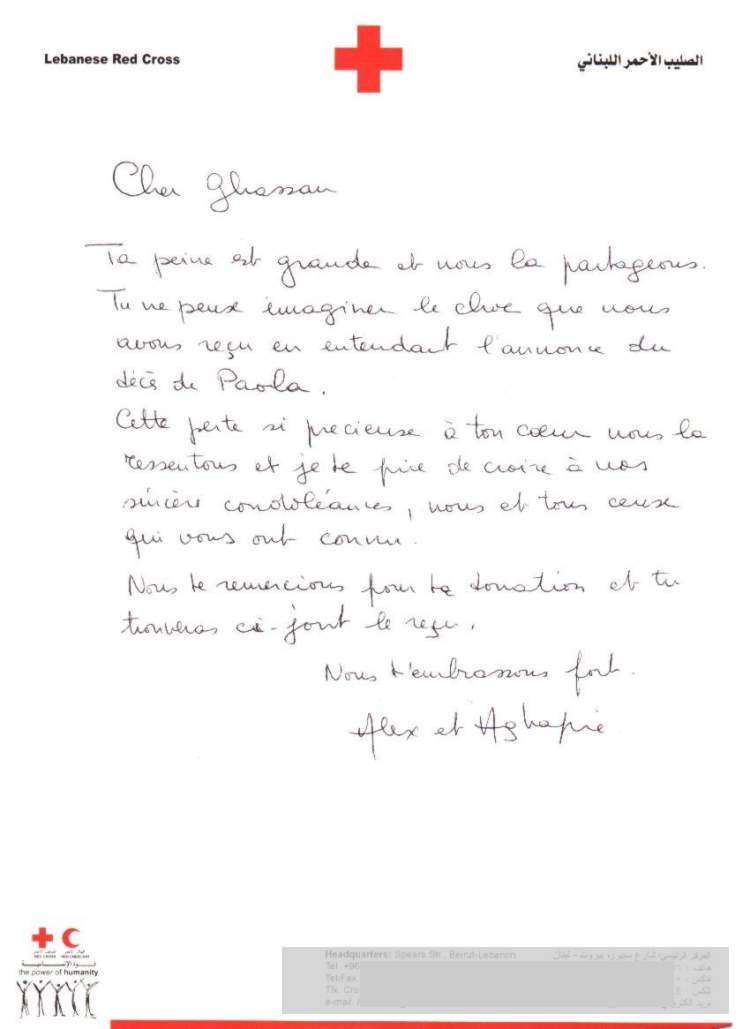 Lebanese Red Cross
الصليب الأحمر اللبناني
Cher Ghassan
Ta peine est grande et nous la partageons.
Tu ne peux imaginer le choc que nous
avons reçu en entendant l'annonce du
décès de Paola.
Cette perte si precieuse à ton cœur nous la
ressentons et je te prie de croire à nos
sincère condoléances, nous et tous ceux
qui vous ont connu.
Nous te remercions pour ta donation et tu
trouveras ci-joint le reçu.
Nous t'embrassons fort.
Alex et Aghapie
the power of humanity
Headquarters: Spears Str. Beirut-Lebanon
المركز الرئيسي: شارع سبيرز، بيروت - لبنان
Tel: +96
Tel/Fax
Tlx. Cro
e-mail